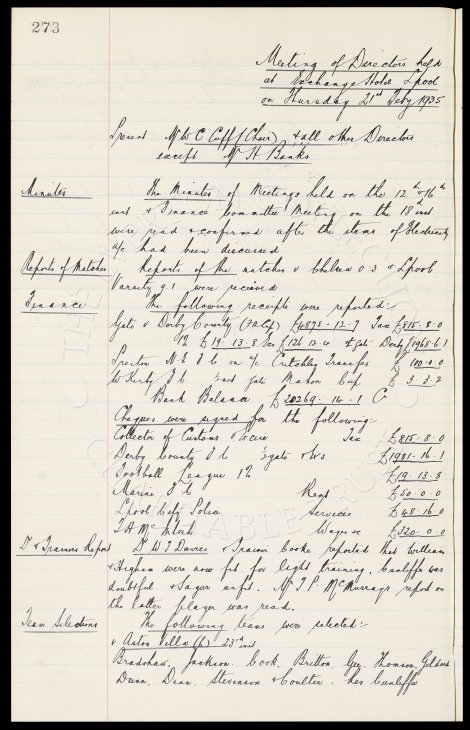 273
Meeting of Directors held
at Exchange Hotel Lpool
on Thursday 21st Feby 1935
Present Mr W C Cuff (Chair) & all other Directors
except Mr H Banks
Minutes The Minutes of Meetings held on the 12th & 16th
inst & Finance Committee Meeting on the 18 inst
were read & confirmed after the items of Electricity
a/c had been discussed
Reports of Matches Reports of the matches v Chelsea 0.3 & Lpool
Varsity 9.1 were received
Finance The following receipts were reported:-
Gate v Derby County (FA Cup) £4898.12.7 Tax £815.8.0
1% £19.13.8 £126.12.4 ½ gate Derby £1968.6.1
Preston N.E. F.C on a/c Critchley Transfer £100.0.0
W Kirby F.C gate Mahon Cup £3.3.2
Bank Balance £20269.14.1 Cr
Cheques were signed for the following:-
Collector of Customs & Excise Tax £815.8.0
Derby County F.C ½ gate £1981.16.1
Football League 1% £19.13.8
Marine F.C Rent £50.0.0
Lpool City Police Services £48.16.0
T.H McIntosh Wages &c £320.0.0
Dr & Trainers Report Dr W J Davies & Trainer Cooke reported that Williams
& Higham were now fit for light training. Cunliffe was
doubtful & Sagar unfit. Mr T.P. McMurrays report on
the latter player was read.
Team Selections The following teams were selected:-
v Aston Villa (h) 23rd inst
Bradshaw. Jackson. Cook. Britton. Gee. Thomson. Geldard
Dunn. Dean. Stevenson & Coulter. Res Cunliffe